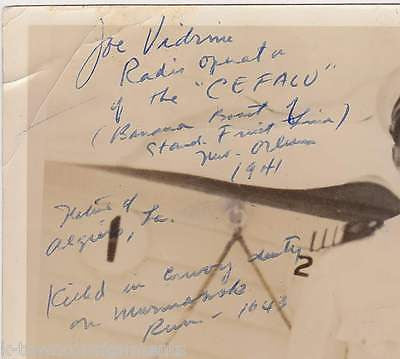 Joe Vidrine
Radio Operator
of the "CEFALU"
(Banana Boat of
Stand. Fruit Line)
New Orleans
1941
Native of
Algiers, La.
1
2
Killed in Convoy duty
on Murmansk
Run - 1943